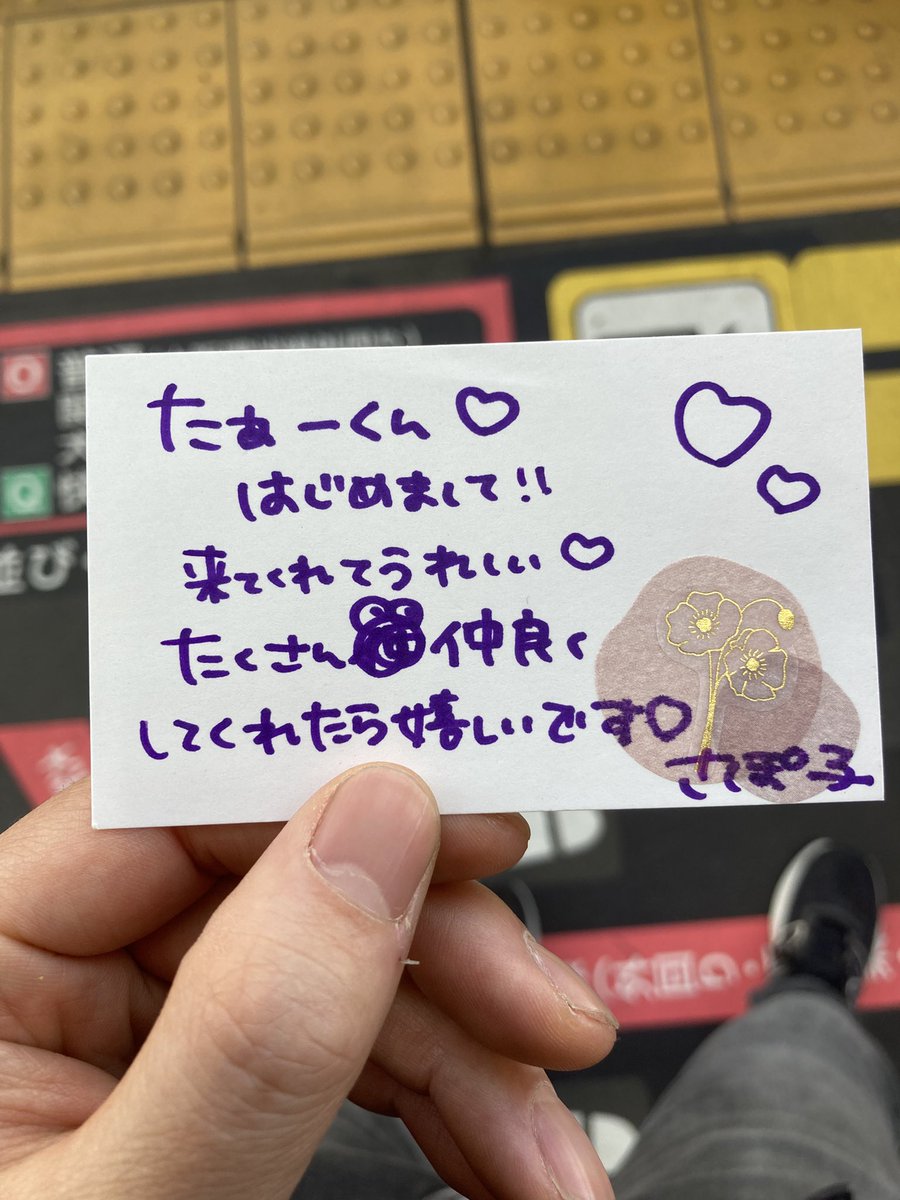 たぁーくん♡
はじめまして!!
来てくれてうれしい♡
たくさん仲良く
してくれたら嬉しいです♡
さくぽ子
並び